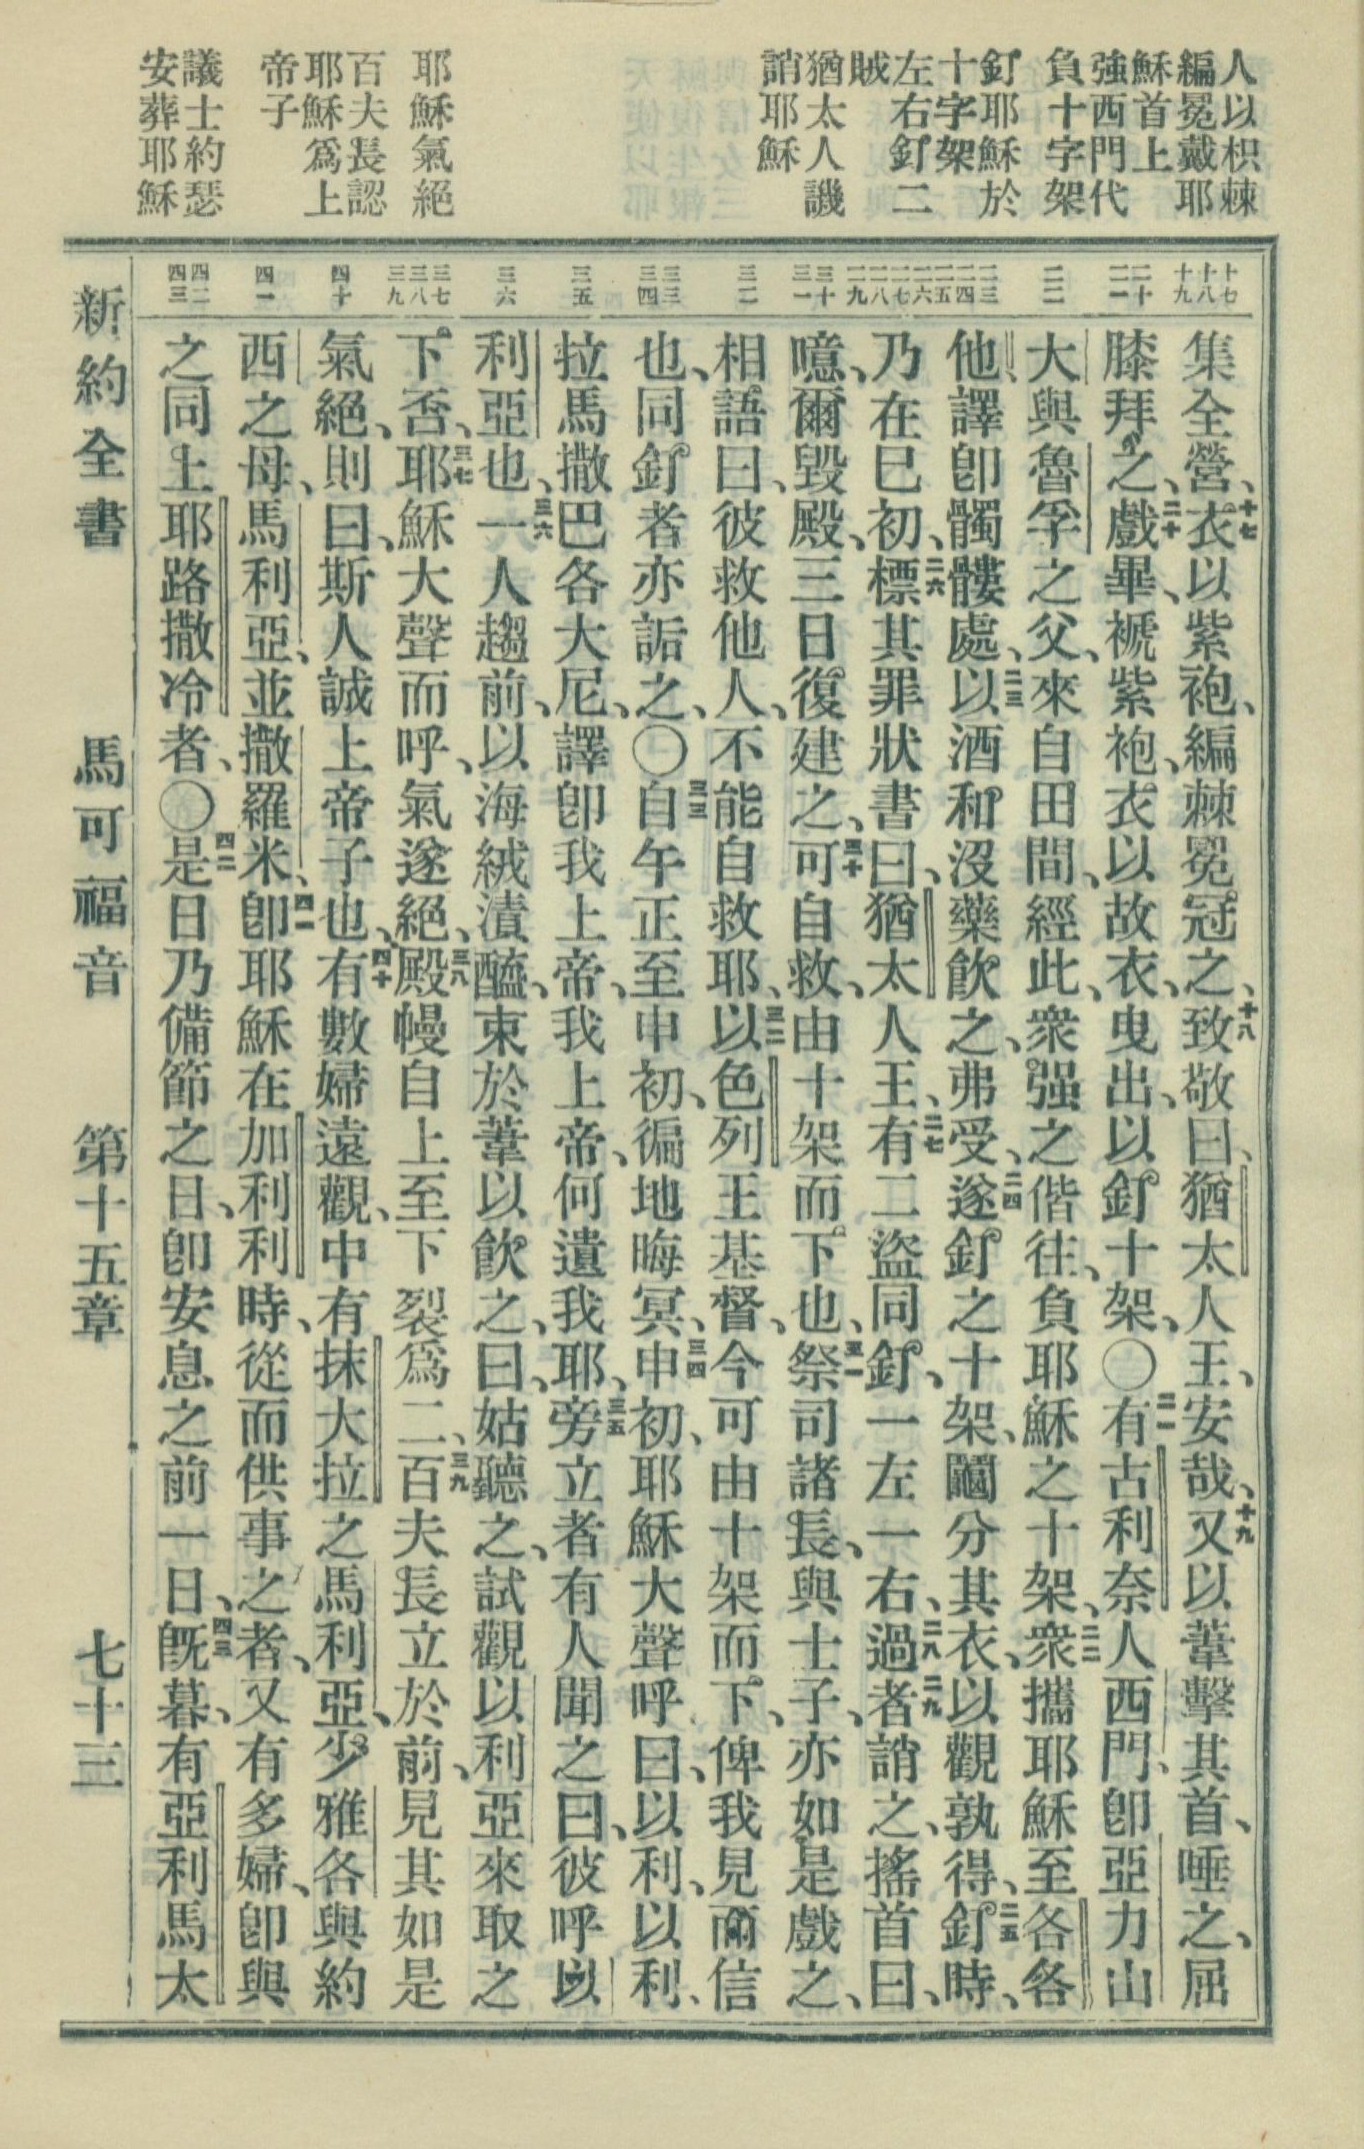 人以枳棘
編冕戴耶
穌首上
強西門代
負十字架
釘耶穌於
十字架
左右釘二
賊
猶太人譏
誚耶穌
耶穌氣絕
百夫長認
耶穌爲上
帝子
議士約瑟
安葬耶穌
十七
十八
十九
二十
二一
二二
二三
二四
二五
二六
二七
二八
二九
三十
三一
三二
三三
三四
三五
三六
三七
三八
三九
四十
四一
四二
四三
集全營、十七衣以紫袍、編棘冕冠之、十八致敬曰、猶太人王、安哉、十九又以葦擊其首、唾之、屈
膝拜之、二十戲畢、褫紫袍、衣以故衣、曳出、以釘十架、〇二一有古利奈人西門、卽亞力山
大與魯孚之父、來自田間、經此、衆强之偕往、負耶穌之十架、二二衆攜耶穌至各各
他、譯卽髑髏處、二三以酒和沒藥飮之、弗受、二四遂釘之十架、鬮分其衣、以觀孰得、二五釘時、
乃在巳初、二六標其罪狀書曰、猶太人王、二七有二盜同釘、一左一右、二八過二九者誚之、搖首曰、
噫、爾毀殿、三日復建之、三十可自救、由十架而下也、三一祭司諸長、與士子、亦如是戲之、
相語曰、彼救他人、不能自救耶、三二以色列王基督、今可由十架而下、俾我見而信
也、同釘者亦詬之、〇三三自午正至申初、徧地晦冥、三四申初、耶穌大聲呼曰、以利、以利、
拉馬撒巴各大尼、譯卽我上帝、我上帝、何遺我耶、三五旁立者有人聞之曰、彼呼以
利亞也、三六一人趨前、以海絨漬醯、束於葦以飮之、曰、姑聽之、試觀以利亞來取之
下否、三七耶穌大聲而呼、氣遂絕、三八殿幔自上至下裂爲二、三九百夫長立於前、見其如是
氣絕、則曰、斯人誠上帝子也、四十有數婦遠觀、中有抹大拉之馬利亞、少雅各與約
西之母、馬利亞、並撒羅米、四一卽耶穌在加利利時、從而供事之者、又有多婦、卽與
之同上耶路撒冷者、〇四二是日乃備節之日、卽安息之前一日、四三旣暮、有亞利馬太
新約全書　馬可福音　第十五章　七十三